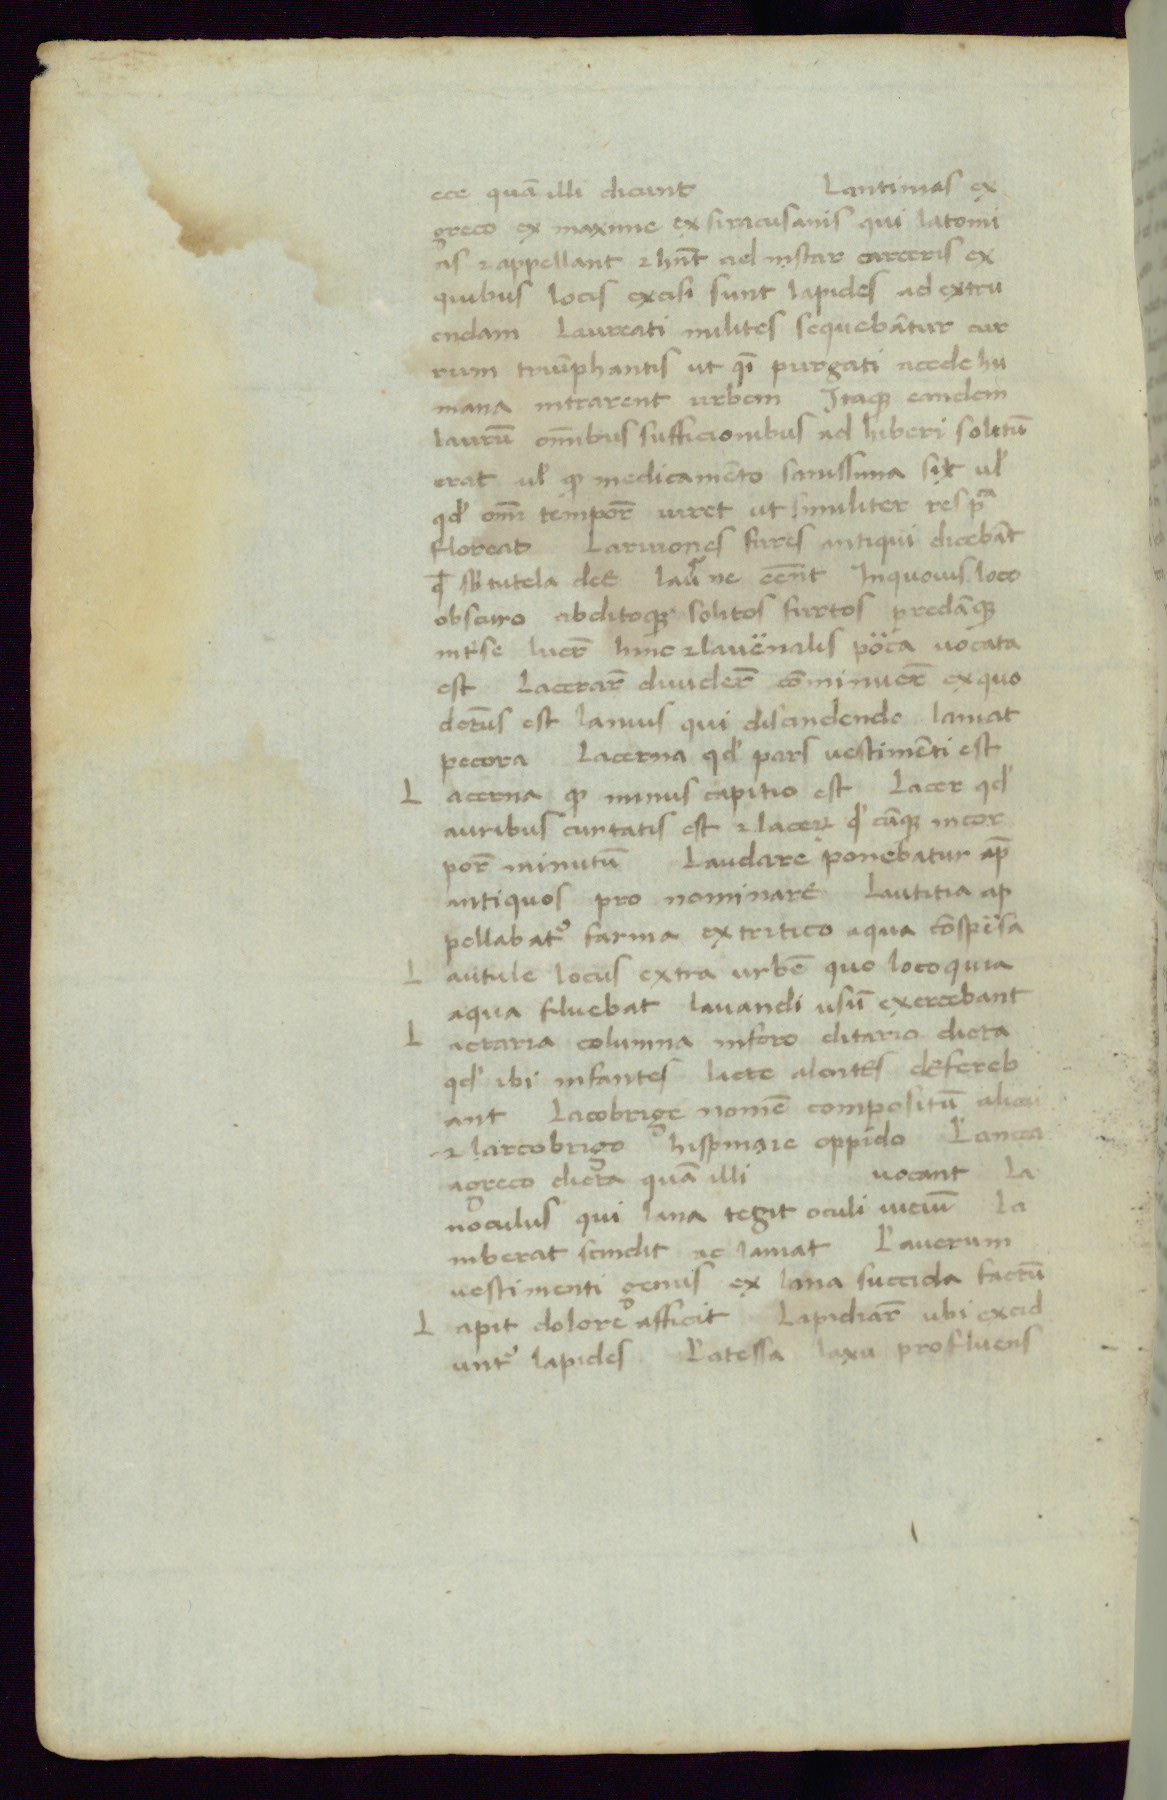 ece quā illi dicunt Lantimas ex
greco ex maxime ex siracusanis qui latomi
as ⁊ appellant ⁊ hn̄t ad instar carceris ex
quibus locis excisi sunt lapides ad extru
endam Laureati milites sequebātur cur
rum triūphantis ut q̄i purgati acede hu
mana intrarent urbem Itaq; eandem
laurū om̄ibus sufficionibus ad hiberi solitū
erat ul' qꝫ medicamēto sit ul'
qd' om̄i tempor̄ uiret ut similiter res p̄a
floreat Laruiones fures antiqui dicebāt
q̄ sb tutela deę lauᷓne eēnt Inquouis loco
obscuro abditoq; solitos furtos predāq;
int'se luer̄ hinc ⁊ lauënalis pöta uocata
est Lacerar̄ diuider̄ cōminuer̄ exquo
dictus est lanius qui discindendo laniat
pecora Lacerna qd' pars uestimēti est
Lacerna qꝫ minus capitio est Lacer qd'
auribus curtatis est ⁊ lacer q'cūq; incor
por̄ minutū Laudare ponebatur ap̄
antiquos pro nominare Lautitia ap
pellabat' farina extritico aqua cōspërsa
Lautule locus extra urbē quo loco quia
aqua fluebat lauandi usū exercebant
Lactaria columna inforo olitario dicta
qd' ibi infantes lacte alentes defereb
ant Lacobrige nomē compositū
⁊ larcobrigo hispanie oppido Lancea
agreco dicta quā illi uocant La
noculus qui lana tegit oculi uiciū La
niberat scindit ac laniat Lauerum
uestimenti genus ex lana succida factū
Lapit dolore afficit Lapidiar̄ ubi excid
unt' lapides Latessa laxa profluens